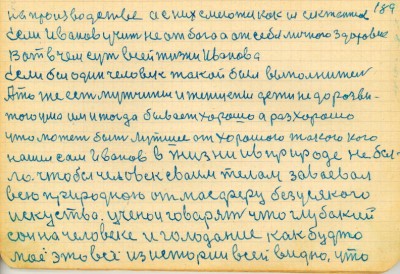 189
на производстве а с них смогти как и скстетил
Если Иванов учит не от бога а от себя личного здоровие
Вот в чем суть всей жизни Иванова
Если бы один человек такой был выполнител
А то же есть мужчины и женщены дети недорозви-
того ума им и тогда бывает хорошо а раз хорошо
что может быть лутшие от хорошого такого кого
нашли сам Иванов в жизни и в природе не бы-
ло. чтобы человек своим телам заваевал
всею природною атмасферу без усякого
искуства. ученои говарят что глубакий
сон на человеке и голодание как будто
маё это всё из истории всей видно, что